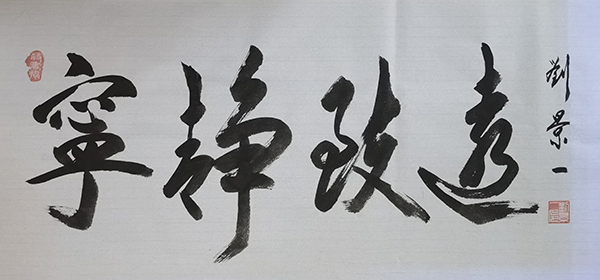 寧靜致遠
劉景一